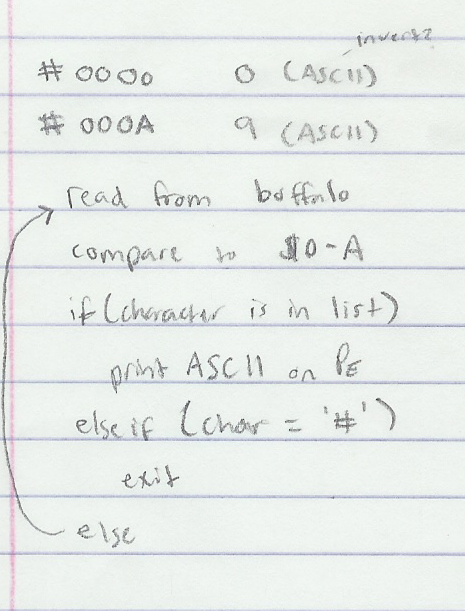 inverse?
#0000 0 (ASCII)
#000A 9 (ASCII)
read from buffalo
compare to $0-A
if (character is in list)
print ASCII on PE
else if (char = '#')
exit
else